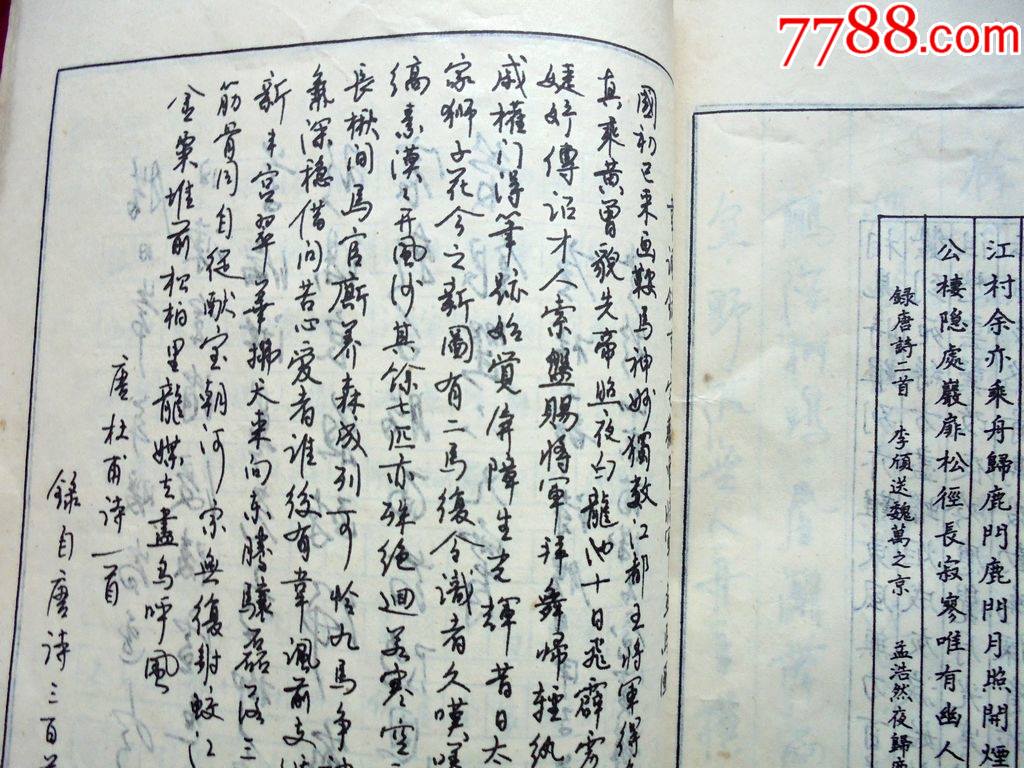 7788.com
江村余亦乘舟歸鹿門鹿門月照開煙
公棲隐處巖扉松徑長寂寥唯有幽人
錄唐詩二首 李頎送魏萬之京 孟浩然夜歸鹿
國初已来画鞍馬神妙獨數江都王将軍得
真乘黃曾貌先帝照夜白龍池十日飛霹雳
婕妤傳诏才人索盤賜将軍拜舞歸輕纨
戚權门得筆跡始覺屏障生光輝昔日太
家獅子花今之新圖有二馬復令識者久嘆
縞素漠々开風沙其餘七匹亦殊絕迥若寒空
長楸间馬官厮养森成列可怜九馬争神
氣深穩借问苦心爱者谁後有韋諷前支
新丰宫翠華拂天来向东騰驤磊落三
筋骨同自從献宝朝河宗無復射蛟江
金粟堆前松柏里龍媒去盡鸟呼風
唐杜甫诗一首
錄自唐诗三百首